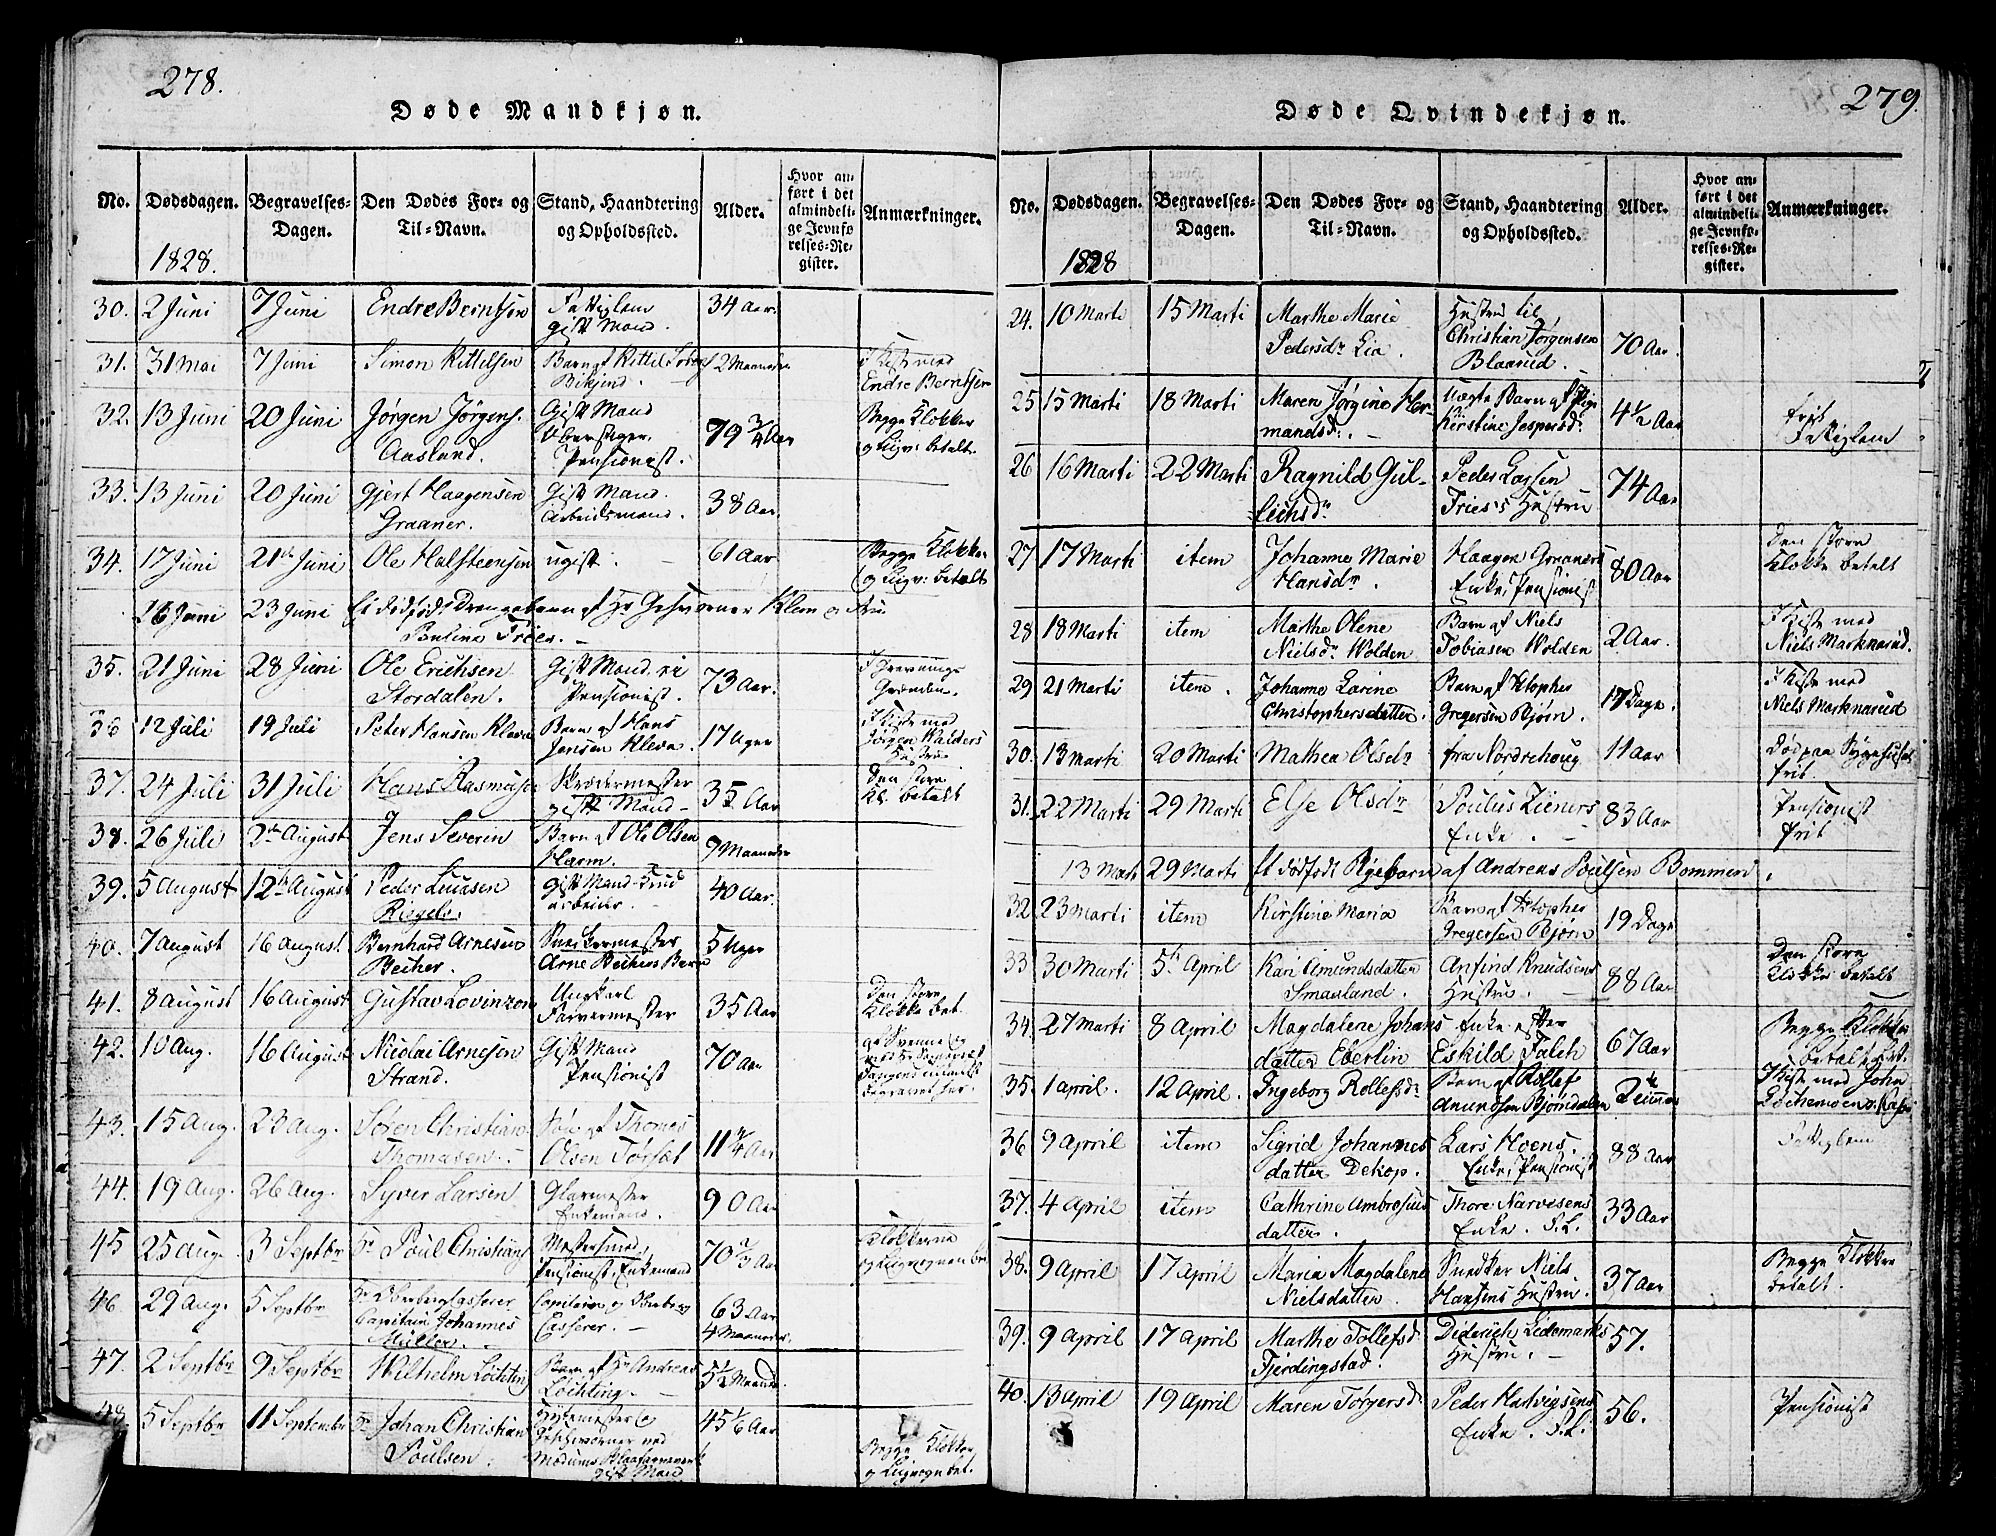 278.
Døde Mandkjøn.
No. Dødsdagen. Begravelses-Dagen. Den Dødes For- og Til-Navn. Stand, Haandtering og Opholdssted. Alder. Hvor anført i det almindelige Jevnførelses-Register. Anmærkninger.
1828.
30. 2 Juni 7 Juni Endre Berntsen Fattiglem gift Mand. 34 Aar.
31. 31 Mai 7 Juni Simon Kittilsen Barn af Kittil 2 Maaneder I Kiste med Endre Berntsen
32. 13 Juni 20 Juni Jørgen Jørgens. Aasland. Gift Mand Oberstiger. Pensionist. 79 3/4 Aar Begge Klokker og Liigv: betalt.
33. 13 Juni 20 Juni Gjert Haagensen Graaner. Gift Mand. Arbeidsmand. 38 Aar.
34. 17 Juni 21de Juni Ole Halfsteensen ugift. 61 Aar Begge Klokker og Liigv: betalt
16 Juni 23 Juni Et dødfødt Drengebarn af Hr Geschworner Klem og Fru Pauline Tröer.
35. 21 Juni 28 Juni Ole Erichsen Stordalen. Gift Mand Pensionist. 73 Aar.
36 12 Juli 19 Juli Peter Hansen Kleva Barn af Hans Jensen Kleva. 17 Uger I Kiste med Jørgen Walders Hustru
37. 24 Juli 31 Juli Hans Rasmusen Skrædermester gift Mand 35 Aar Den store Kl. betalt
38. 26 Juli 2de August Jens Severin Barn af Ole Olsen Harm. 9 Maaneder
39. 5 August 12te August Peder Luasen Riegels. Gift Mand arbeider. 40 Aar.
40. 7 August 16 August. Bernhard Arnesen Becher. Sneckermester Arne Bechers Barn 5 Uger
41. 8 August 16 August Gustav Lovinzon Ungkarl Farvermester 35 Aar Den store Klokke bet.
42. 10 Aug. 16 August Nicolai Arnesen Strand. Gift Mand Pensionist 70 Aar
43. 15 Aug. 23 Aug. Søren Christian Thomasen. Søn af Thomas Olsen Torsæt 11 3/4 Aar
44. 19 Aug. 26 Aug. Syver Larsen Glarmester Enkemand. 90 Aar
45 25 Aug. 3 Septbr Hr Poul Christians Mestersmed, Pensionist, Enkemand 70 2/3 Aar Klokkerne og Liigvognen bet
46 29 Aug. 5 Septbr Hr Oberbergkasserer Capitain Johannes Müller. Capitain og Oberberg Casserer. 63 Aar 4 Maaneder.
47. 2 Septbr 9 Septbr Wilhelm Löchting Barn af Hr Andreas Löchting. 5 1/2 Maaned.
48 5 Septbr 11 September Hr Johan Christian Poulsen. Hyttemester og Geschworner ved Modums Blaafarveværk gift Mand 45 1/6 Aar Begge Klokker og Liigvogn bet.
279.
Døde Qvindekjøn.
No. Dødsdagen. Begravelses-Dagen. Den Dødes For- og Til-Navn. Stand, Haandtering og Opholdssted. Alder. Hvor anført i det almindelige Jevnførelses-Register. Anmærkninger.
1828
24. 10 Marti 15 Marti Marthe Marie Pedersdr Lia. Hustru til Christian Jørgensen Blaarud. 70 Aar.
25 15 Marti 18 Marti Maren Jørgine Hermandsd: Uægte Barn af Pige Kirstine Jespersd: 4 1/2 Aar frit Fattiglem
26 16 Marti 22 Marti Ragnild Gullichsdr Peder Larsen Fries's Hustru 74 Aar
27 17 Marti item Johanne Marie Hansdr Haagen Graaners Enke, Pensionist 80 Aar Den store Klokke betalt
28 18 Marti item Marthe Olene Nielsdr Wolden Barn af Niels Tobiasen Wolden 2 Aar. I Kiste med Niels Marknarud.
29 21 Marti item. Johanne Larine Christophersdatter. Barn af Xtopher Gregersen Bjørn. 17 Dage. I Kiste med Niels Marknarud
30. 13 Marti 20 Marti Mathea Olsdr fra Nordrehoug 11 Aar Død paa Sygehuset frit
31. 22 Marti 29 Marti Else Olsdr Poulus Zieners Enke. 83 Aar Pensionist frit
13 Marti 29 Marti Et dødfødt Pigebarn af Andreas Poulsen Bommen.
32. 23 Marti item Kirstine Maria Barn af Xtopher Gregersen Bjørn 19 Dage
33 30 Marti 5te April Kari Amundsdatter Smaaland. Anfind Knudsens Hustru. 88 Aar Den store Klokke betalt
34. 27 Marti 8 April Magdalene Johans datter Eberlin Enke efter Eskild Falch 67 Aar Begge Klokker betalt
35. 1 April. 12 April. Ingeborg Rollefsd: Barn af Rollef Amundsen Bjørndalen I Kiste med John
36 9 April item Sigrid Johannes datter Dekop. Lars Hoens Enke, Pensionist 88 Aar Fattiglem
37. 4 April item Cathrine Ambrosius datter. Thore Narvesens Enke. F.L. 33 Aar
38. 9 April 17 April Maria Magdalene Nielsdatter Snedker Niels Hansens Hustru. 37 Aar Begge Klokker betalt.
39. 9 April 17 April Marthe Tollefsd Fjerdingstad. Diderich Lidemarks Hustru. 57.
40. 13 April 19 April Maren Torgersd: Peder Hartvigsens Enke. F.L. 56. Pensionist